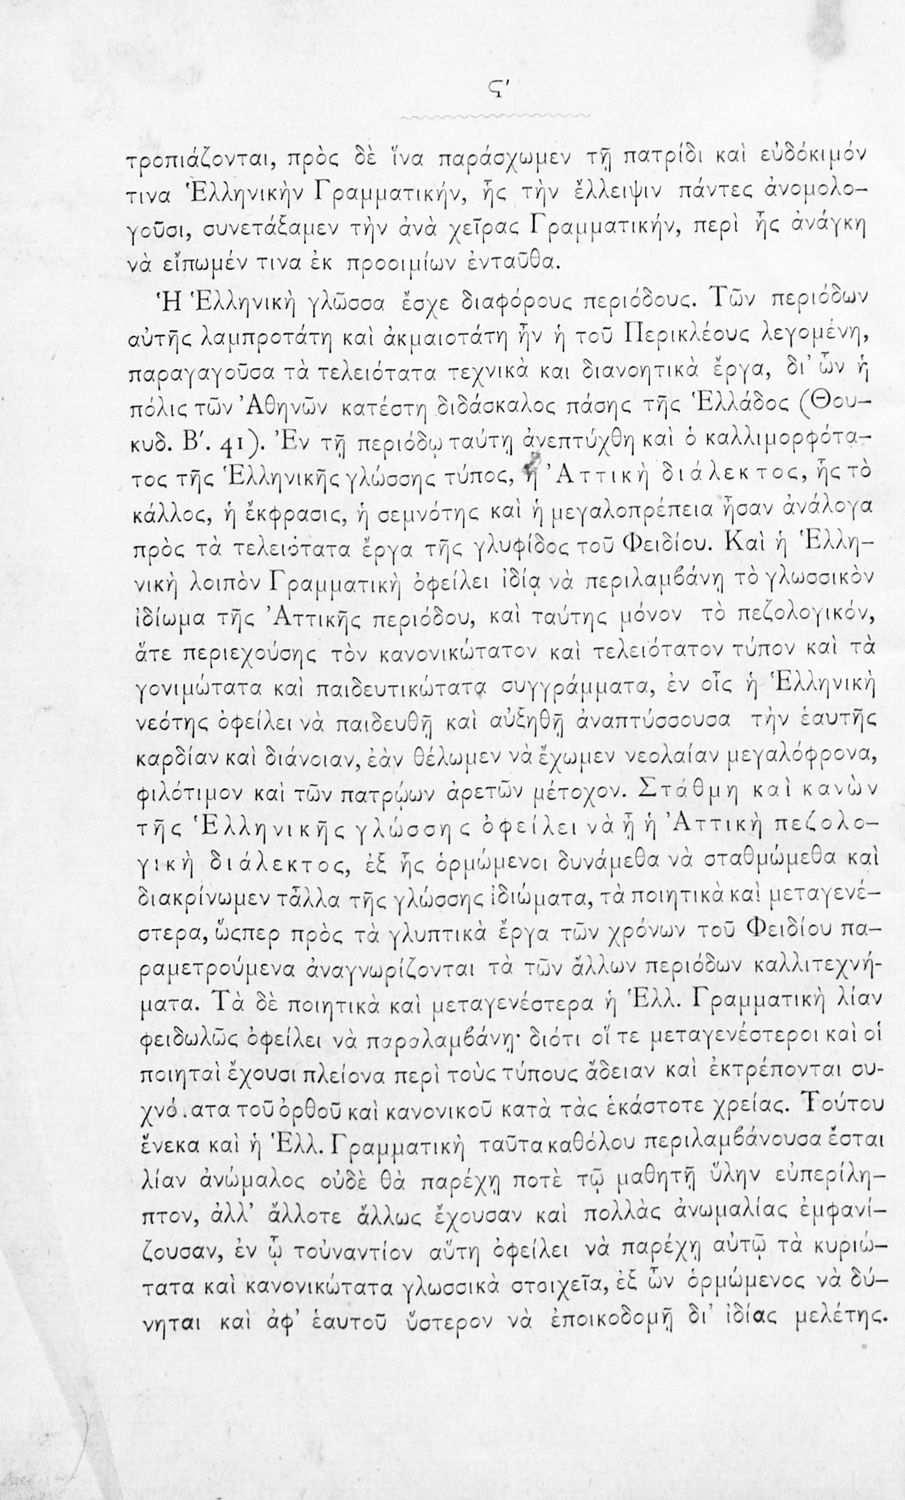 ϛʹ
τροπιάζονται, πρὸς δὲ ἵνα παράσχωμεν τῇ πατρίδι καὶ εὐδόκιμόν
τινα Ἑλληνικὴν Γραμματικήν, ἧς τὴν ἔλλειψιν πάντες ἀνομολο-
γοῦσι, συνετάξαμεν τὴν ἀνὰ χεῖρας Γραμματικήν, περὶ ἧς ἀνάγκη
νὰ εἴπωμέν τινα ἐκ προοιμίων ἐνταῦθα.
Ἡ Ἑλληνικὴ γλῶσσα ἔσχε διαφόρους περιόδους. Τῶν περιόδων
αὐτῆς λαμπροτάτη καὶ ἀκμαιοτάτη ἦν ἡ τοῦ Περικλέους λεγομένη,
παραγαγοῦσα τὰ τελειότατα τεχνικὰ και διανοητικὰ ἔργα, δι' ὧν ἡ
πόλις τῶν Ἀθηνῶν κατέστη διδάσκαλος πάσης τῆς Ἑλλάδος (Θου-
κυδ. Β΄. 41). Ἐν τῇ περιόδῳ ταύτῃ ἀνεπτύχθη καὶ ὁ καλλιμορφότα-
τος τῆς Ἑλληνικῆς γλώσσης τύπος, ἡ Ἀττικὴ διάλεκτος, ἧς τὸ
κάλλος, ἡ ἔκφρασις, ἡ σεμνότης καὶ ἡ μεγαλοπρέπεια ἦσαν ἀνάλογα
πρὸς τὰ τελειότατα ἔργα τῆς γλυφίδος τοῦ Φειδίου. Καὶ ἡ Ἑλλη-
νικὴ λοιπὸν Γραμματικὴ ὀφείλει ἰδίᾳ νὰ περιλαμβάνῃ τὸ γλωσσικὸν
ἰδίωμα τῆς Ἀττικῆς περιόδου, καὶ ταύτης μόνον τὸ πεζολογικόν,
ἅτε περιεχούσης τὸν κανονικώτατον καὶ τελειότατον τύπον καὶ τὰ
γονιμώτατα καὶ παιδευτικώτατα συγγράμματα, ἐν οἷς ἡ Ἑλληνικὴ
νεότης ὀφείλει νὰ παιδευθῇ καὶ αὐξηθῇ ἀναπτύσσουσα τὴν ἑαυτῆς
καρδίαν καὶ διάνοιαν, ἐὰν θέλωμεν νὰ ἔχωμεν νεολαίαν μεγαλόφρονα,
φιλότιμον καὶ τῶν πατρῴων ἀρετῶν μέτοχον. Στάθμη καὶ κανὼν
τῆς Ἑλληνικῆς γλώσσης ὀφείλει νὰ ᾖ ἡ Ἀττικὴ πεζολο-
γικὴ διάλεκτος, ἐξ ἧς ὁρμώμενοι δυνάμεθα νὰ σταθμώμεθα καὶ
διακρίνωμεν τἆλλα τῆς γλώσσης ἰδιώματα, τὰ ποιητικὰ καὶ μεταγενέ-
στερα, ὥςπερ πρὸς τὰ γλυπτικὰ ἔργα τῶν χρόνων τοῦ Φειδίου πα-
ραμετρούμενα ἀναγνωρίζονται τὰ τῶν ἄλλων περιόδων καλλιτεχνή-
ματα. Τὰ δὲ ποιητικὰ καὶ μεταγενέστερα ἡ Ἑλλ. Γραμματικὴ λίαν
φειδωλῶς ὀφείλει νὰ παραλαμβάνῃ· διότι οἵ τε μεταγενέστεροι καὶ οἱ
ποιηταὶ ἔχουσι πλείονα περὶ τοὺς τύπους ἄδειαν καὶ ἐκτρέπονται συ-
τοῦ ὀρθοῦ καὶ κανονικοῦ κατὰ τὰς ἑκάστοτε χρείας. Τούτου
ἕνεκα καὶ ἡ Ἑλλ. Γραμματικὴ ταῦτα καθόλου περιλαμβάνουσα ἔσται
λίαν ἀνώμαλος οὐδὲ θὰ παρέχῃ ποτὲ τῷ μαθητῇ ὕλην εὐπερίλη-
πτον, ἀλλ' ἄλλοτε ἄλλως ἔχουσαν καὶ πολλὰς ἀνωμαλίας ἐμφανί-
ζουσαν, ἐν ᾧ τοὐναντίον αὕτη ὀφείλει νὰ παρέχῃ αὐτῷ τὰ κυριώ-
τατα καὶ κανονικώτατα γλωσσικὰ στοιχεῖα, ἐξ ὧν ὁρμώμενος νὰ δύ-
νηται καὶ ἀφ' ἑαυτοῦ ὕστερον νὰ ἐποικοδομῇ δι' ἰδίας μελέτης.